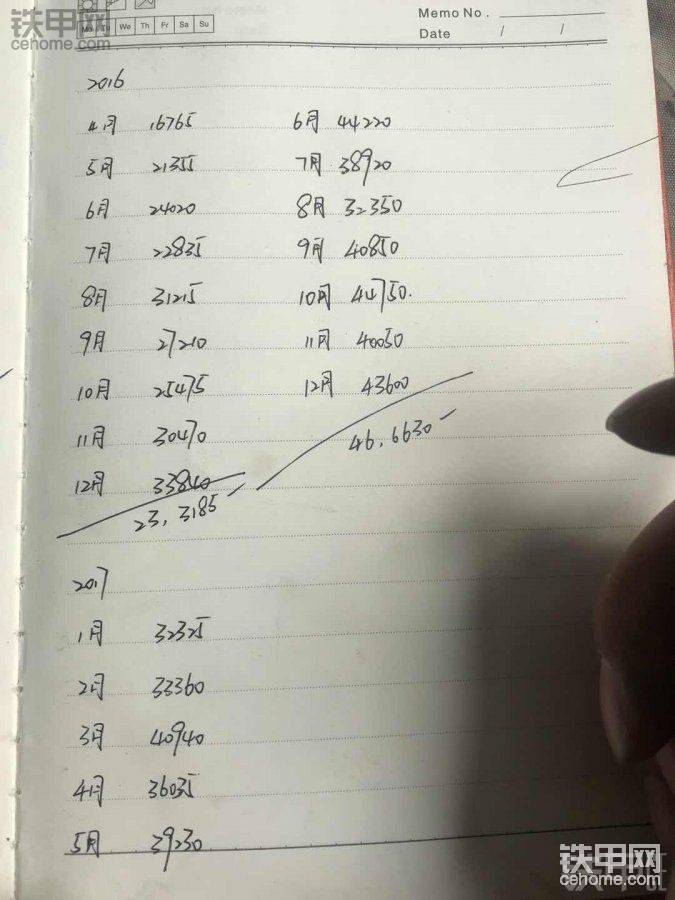 铁甲网
cehome.com
Mo Tu We Th Fr Sa Su
Memo No.
Date / /
2016
4月 16765
5月 21355
6月 24020
7月 22835
8月 31215
9月 27210
10月 25475
11月 30470
12月 33840
23,3185
2017
1月 32325
2月 33360
3月 40940
4月 36035
5月 39230
6月 44220
7月 38920
8月 32350
9月 40850
10月 44750.
11月 40050
12月 43600
46,6630
铁甲网
cehome.com